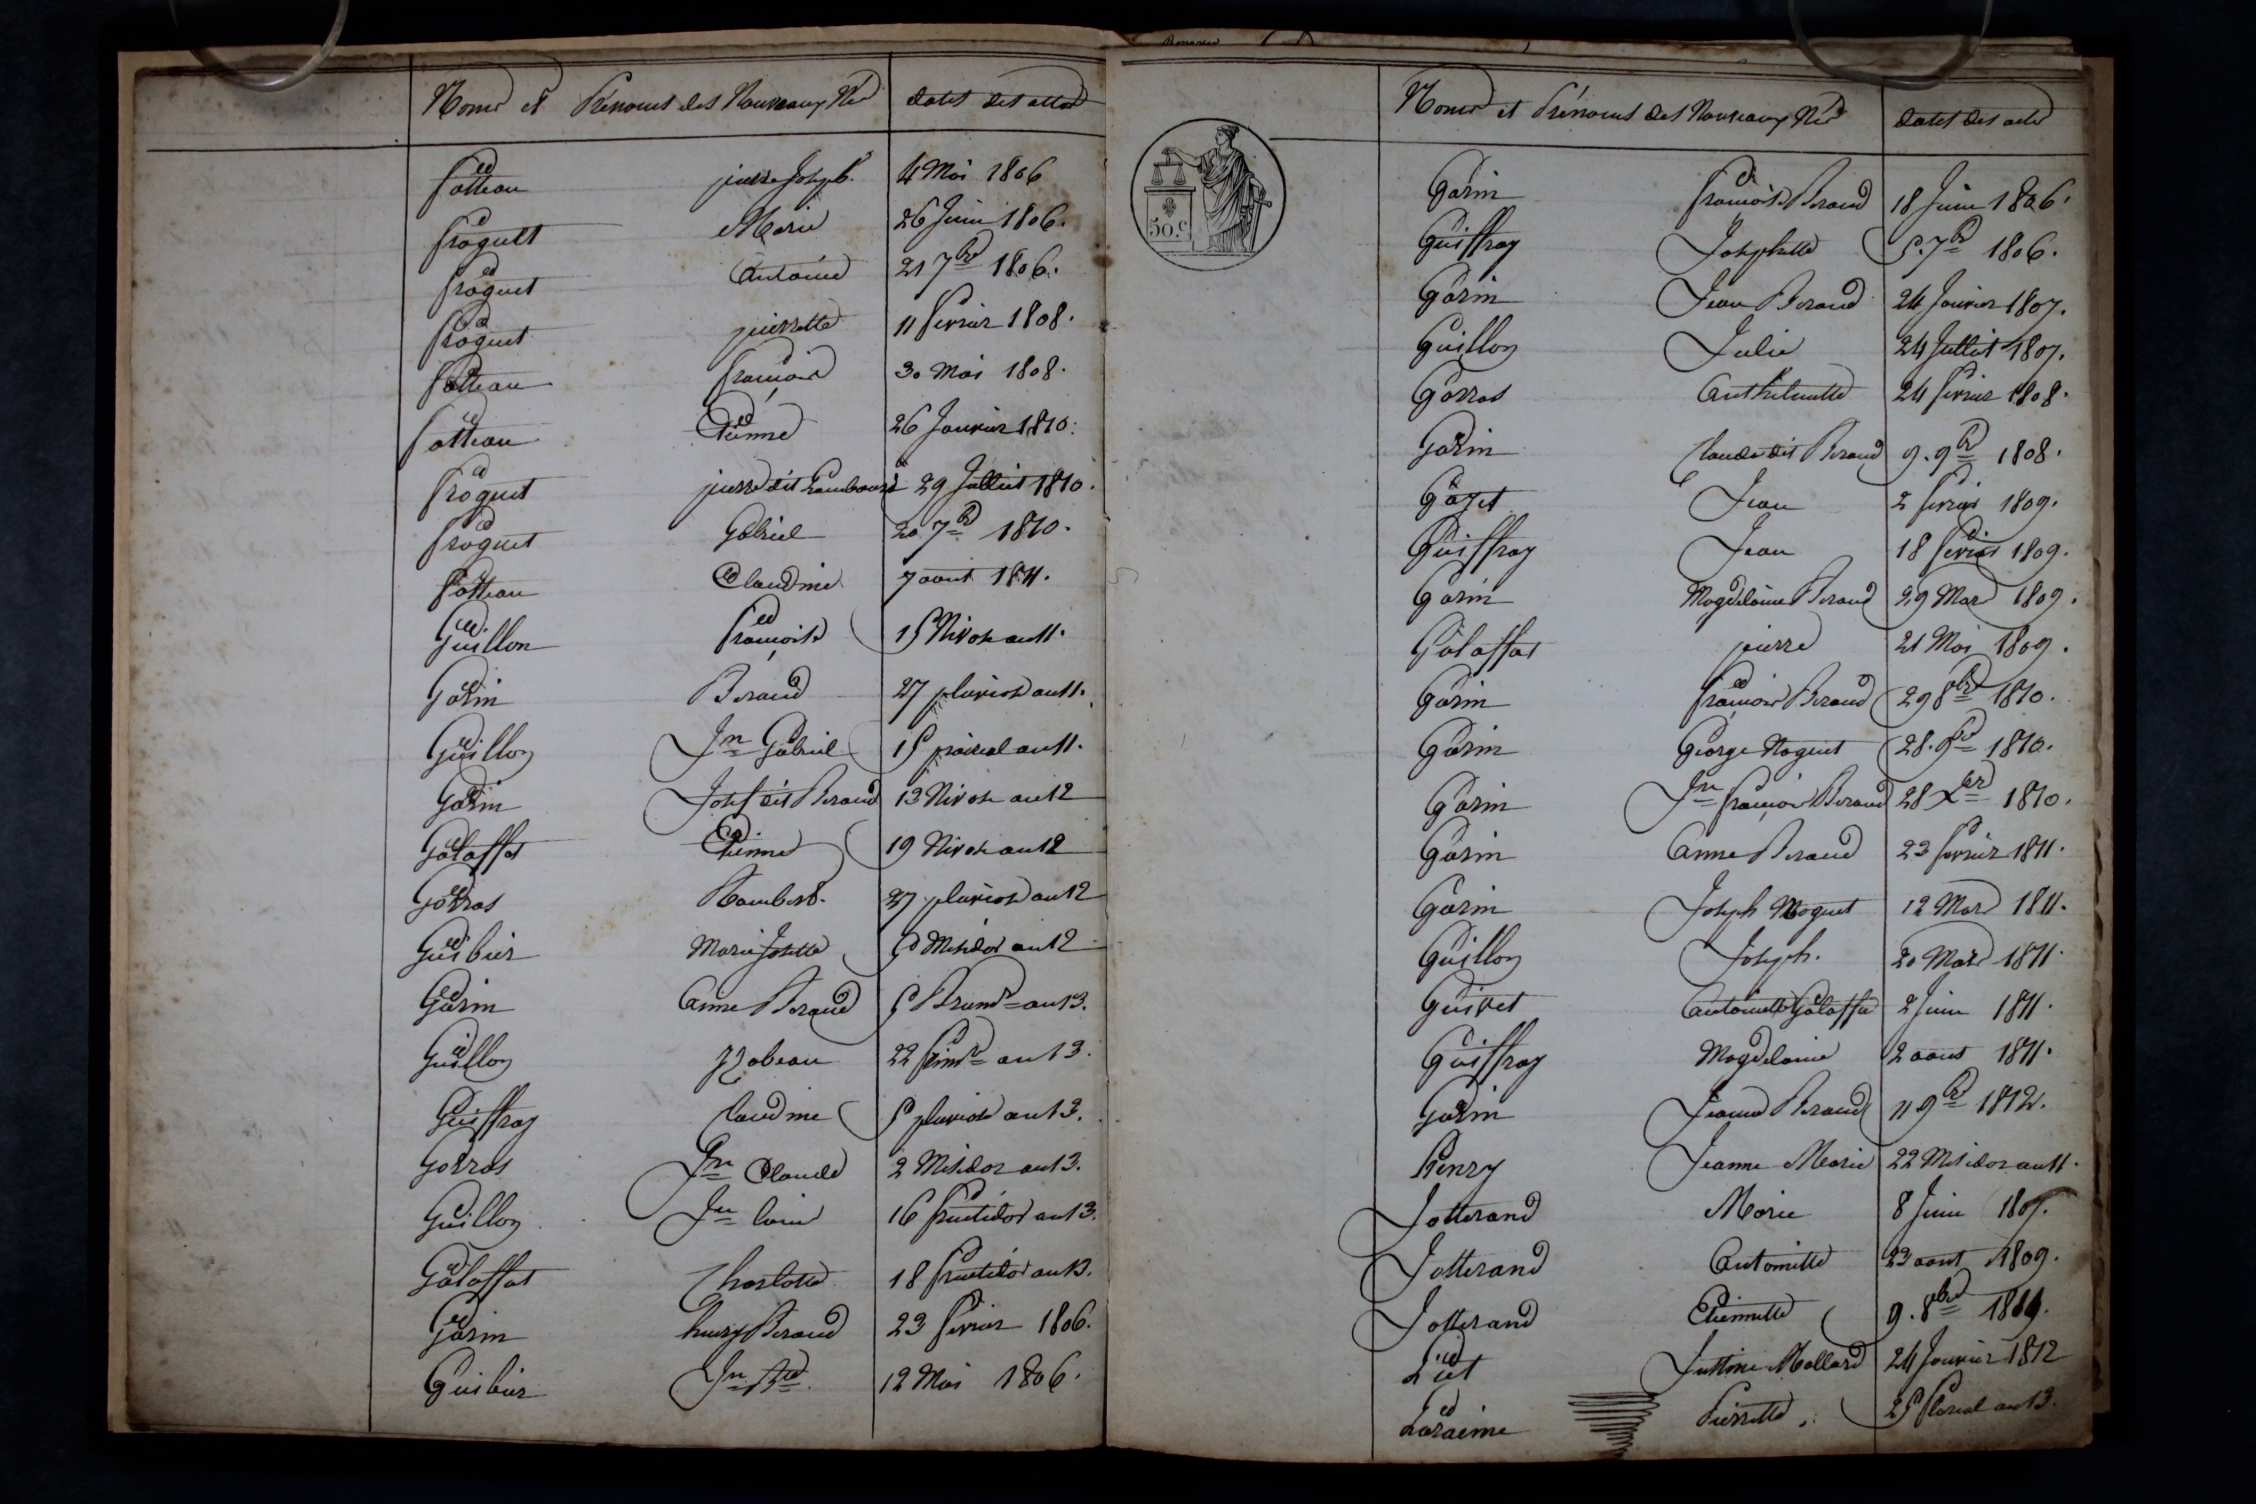 Noms et Prénoms des Nouveaux Nés dates des actes
fatteau pierre Joseph 4 Mai 1806
froguet Marie 26 Juin 1806.
froguet Antoine 21 7bre 1806.
froguet pierrette 11 fevrier 1808.
fatteau françois 30 Mai 1808.
fatteau Etienne 26 Janvier 1810.
froguet pierre dit 29 Julliet 1810.
froguet Gabriel 20 7bre 1810.
fatteau Claudine 7 aout 1811.
Guillon françoise 15 Nivose an 11.
Garin Beraud 27 pluviose an 11.
Guillon Jn Gabriel 15 prairial an 11.
Garin Josef dit Beraud 13 Nivose an 12
Galaffat Etienne 19 Nivose an 12
Garras Rambert 27 pluviose an 12
Guibier Marie Josette 5 Messidor an 12
Garin Anne Beraud 5 Brumre an 13.
Guillon Izabeau 22 frimre an 13.
Guiffray Claudine 5 pluviose an 13.
Garras Jn Claude 2 Messidor an 13.
Guillon Jn Louis 16 fructidor an 13.
Galaffat Charlotte 18 fructidor an 13.
Garin henry Beraud 23 fevrier 1806.
Guibier Jn Bte 12 Mai 1806.
50.c
Noms et Prénoms des Nouveaux Nés dates des actes
Garin françoise Beraud 18 Juin 1806.
Guiffray Josephette 5. 7bre 1806.
Garin Jean Beraud 24 Janvier 1807.
Guillon Julie 24 Jullet 1807.
Garras Anthelmette 24 fevrier 1808.
Garin Claude dit Beraud 9. 9bre 1808.
Gojet Jean 2 fevrier 1809.
Guiffray Jean 18 fevrier 1809.
Garin Magdelaine Beraud 29 Mars 1809.
Galaffat pierre 21 Mai 1809.
Garin françois Beraud 29 8bre 1810.
Garin George Noguet 28. 9bre 1810.
Garin Jn françois Beraud 28 Xbre 1810.
Garin Anne Beraud 23 fevrier 1811.
Garin Joseph Noguet 12 Mars 1811.
Guillon Joseph. 20 Mars 1811.
Guivet Antoinette Galaffat 2 Juin 1811.
Guiffray Magdelaine 2 aout 1811.
Garin Jeanne Beraud 11 9bre 1812.
henry Jeanne Marie 22 Messidor an 11.
Jotterand Marie 8 Juin 1807.
Jotterand Antoinette 23 aout 1809.
Jotterand Etiennette 9. 8bre
Liet Justine Mollard 24 Janvier 1812
Laraime Pierrette 25 floreal an 13.